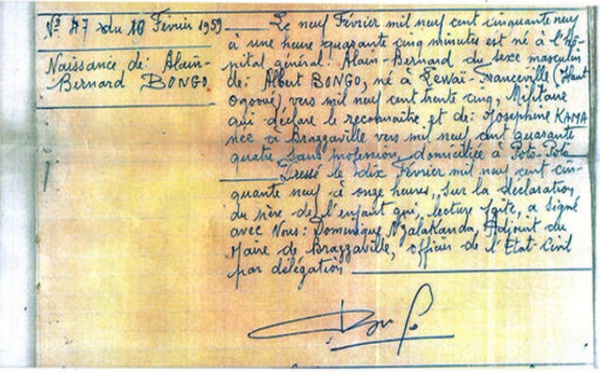 N° 47 du 10 Février 1959
Naissance de: Alain-
Bernard BONGO
Le neuf Février mil neuf cent cinquante neuf
à une heure quarante cinq minutes est né à l'hô-
pital général: Alain-Bernard du sexe masculin
de: Albert BONGO, né à Lewaï-Franceville (Haut
Ogooué) vers mil neuf cent trente cinq, Militaire
qui déclare le reconnaître et de: Josephine KAMA
née à Brazzaville vers mil neuf cent quarante
quatre sans profession, domiciliée à Poto-Poto
Dressé le dix Février mil neuf cent cin-
quante neuf à onze heures, sur la déclaration
du père de l'enfant qui, lecture faite, a signé
avec Nous: Dominique Nzalakanda, Adjoint du
Maire de Brazzaville, officier de l'Etat-Civil
par délégation